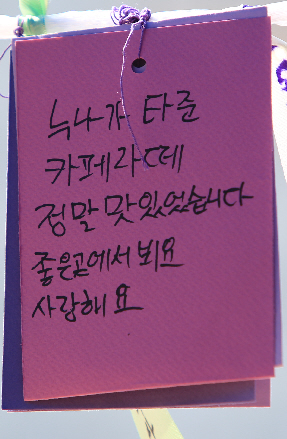 누나가 타준
카페라떼
정말 맛있었습니다
좋은곳에서 뵈요
사랑해요